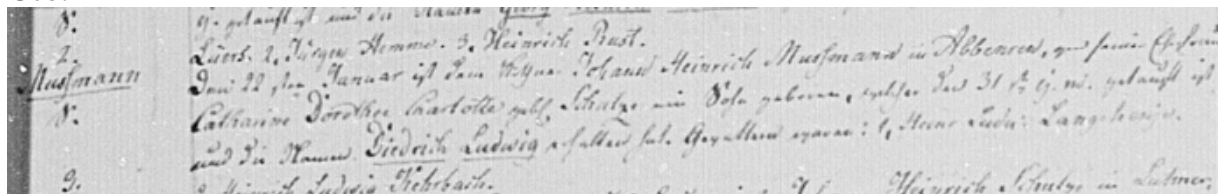 S. g. getauft ist und die Namen Georg
2. Luers. 2, Jürgen Hemme. 3, Heinrich Rust.
Mußmann Den 22 sten Januar ist dem Johann Heinrich Mußmann in Abbensen, von seiner Ehefrau
S. Catharine Dorothee Charlotte geb. Schulze ein Sohn geboren, welcher den 31 st. ej. m. getauft ist
und die Namen Diedrich Ludwig erhalten hat. Gevattern waren: 1, Ludw:
3. 2, Heinrich Ludwig Fehrbach.
Heinrich Schulze in